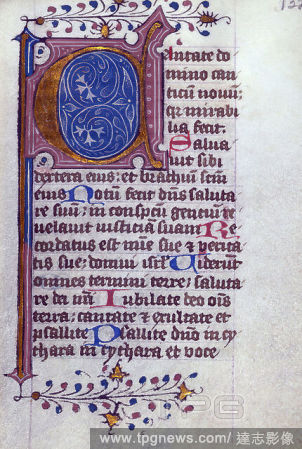 122
Cantate do
mino can
ticum nouu:
qr mirabi
lia fecit.
Salua
uit sibi
dextera eius: et brachiu scm
eius Notum fecit dns saluta
re suu: in conspectu gentiu re
uelauit iusticia suam Re
cordatus est mie sue & verita
tis sue: domui isrl Viderunt
omnes termini terre: saluta
re dei nri Iubilate deo ois
terra: cantate & exultate et
psallite Psallite dno in cy
thara in cythara et voce
TPG
www.tpgnews.com/達志影像